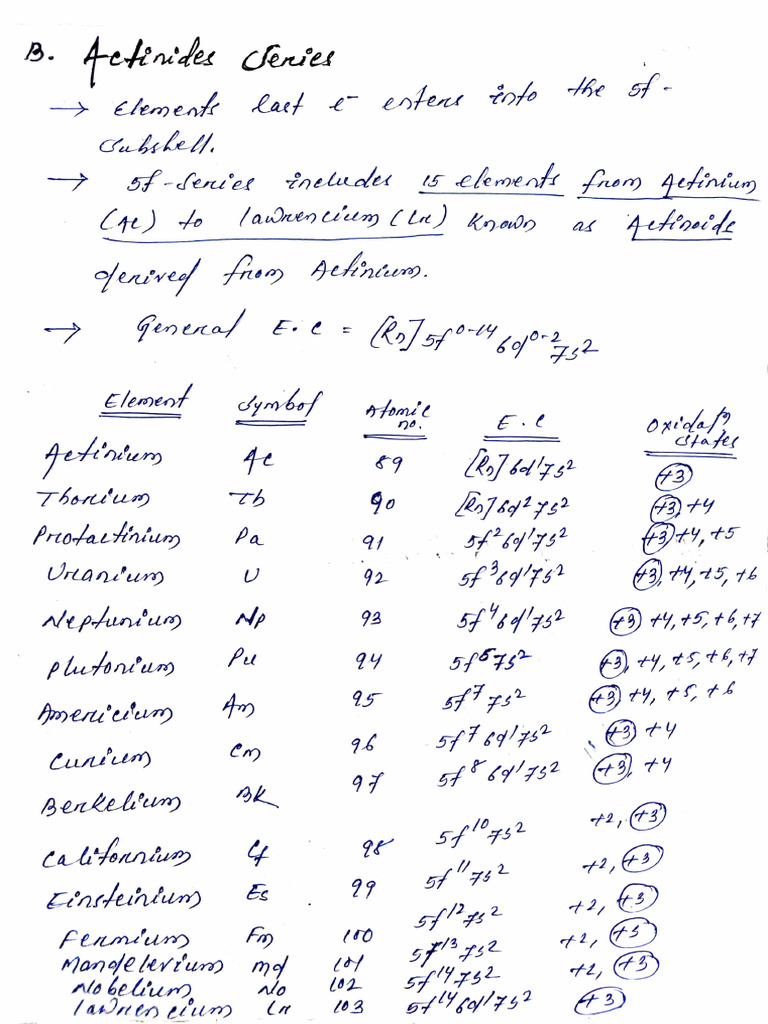 B. Actinides Series
→ Elements last e⁻ enters into the 5f-
subshell.
→ 5f-series includes 15 elements from Actinium
(Ac) to lawrencium (Lr) known as Actinoids
derived from Actinium.
→ General E.C = [Rn] 5f⁰⁻¹⁴ 6d⁰⁻² 7s²
Element Symbol Atomic no. E.C Oxidatⁿ states
Actinium Ac 89 [Rn] 6d¹7s² +3
Thorium Th 90 [Rn] 6d²7s² +3, +4
Protactinium Pa 91 5f²6d¹7s² +3, +4, +5
Uranium U 92 5f³6d¹7s² +3, +4, +5, +6
Neptunium Np 93 5f⁴6d¹7s² +3 +4, +5, +6, +7
Plutonium Pu 94 5f⁶7s² +3, +4, +5, +6, +7
Americium Am 95 5f⁷7s² +3, +4, +5, +6
Curium Cm 96 5f⁷6d¹7s² +3 +4
Berkelium BK 97 5f⁸6d¹7s² +3, +4
Californium Cf 98 5f¹⁰7s² +2, +3
Einsteinium Es 99 5f¹¹7s² +2, +3
Fermium Fm 100 5f¹²7s² +2, +3
Mandelevium md 101 5f¹³7s² +2, +3
Nobelium No 102 5f¹⁴7s² +2, +3
lawrencium Lr 103 5f¹⁴6d¹7s² +3